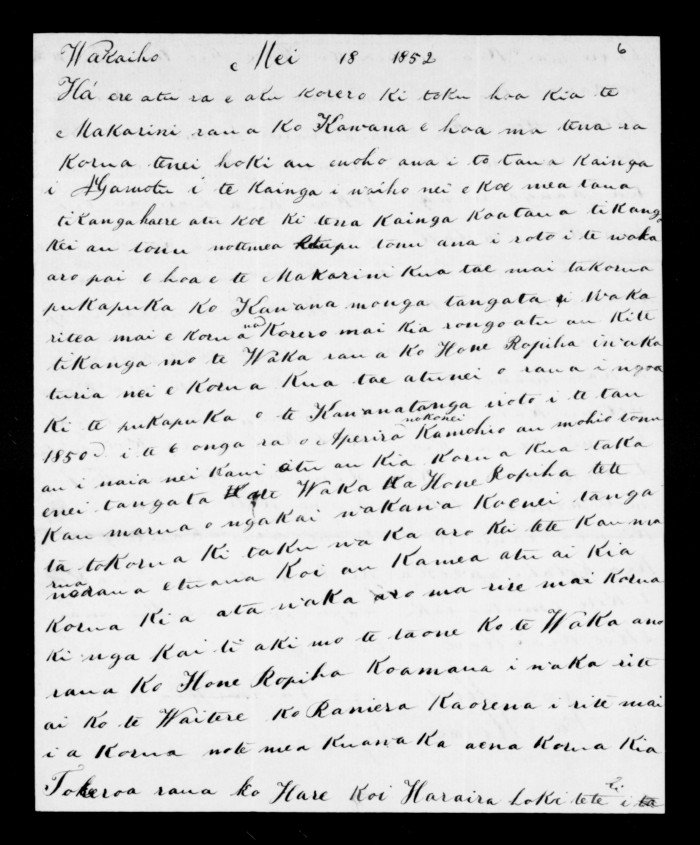 Wakaiho Mei 18 1852 6
Há ere atu ra e aku korero ki toku hoa kia te
Makarini raua ko Kawana e hoa ma tena ra
korua tenei hoki au e noho ana i to taua kainga
i Ngamotu i te kainga i waiho nei e koe mea taua
tikanga haere atu koe ki tena kainga ko a taua tikanga
kei au tonu notemea tupu tonu ana i roto i te waka
aro pai e hoa e te Makarini kua tae mai takorua
pukapuka ko Kawana mo nga tangata i waka
ritea mai e korua korero mai kia rongo atu au ki te
tikanga mo te Waka raua ko Hone Ropiha i waka
turia nei e korua kua tae atu nei o raua ingoa
ki te pukapuka o te Kawanatanga i roto i te tau
1850 i te 6 o nga ra o Aperira nakonei kamohio au mohio tonu
au i naia nei kaui atu au kia korua kua taka
enei tangata te Waka Hone Ropiha te te
kau marua o nga kai wakawa ko enei tanga
ta to korua ki taku wa ka aro kei te te kau ma
rua raua e tu ana koi au ka mea atu ai kia
korua ki a ata waka aro ma rire mai korua
ki nga kai ti aki mo te taone ko te Waka ano
raua ko Hone Ropiha ko a mana i waka rite
ai ko te Waitere ko Raniera kaore na i rite mai
i a korua note mea kua wa ka ae na korua kia
Tokeroa raua ko Hare koi Haraira hoki te te hi i